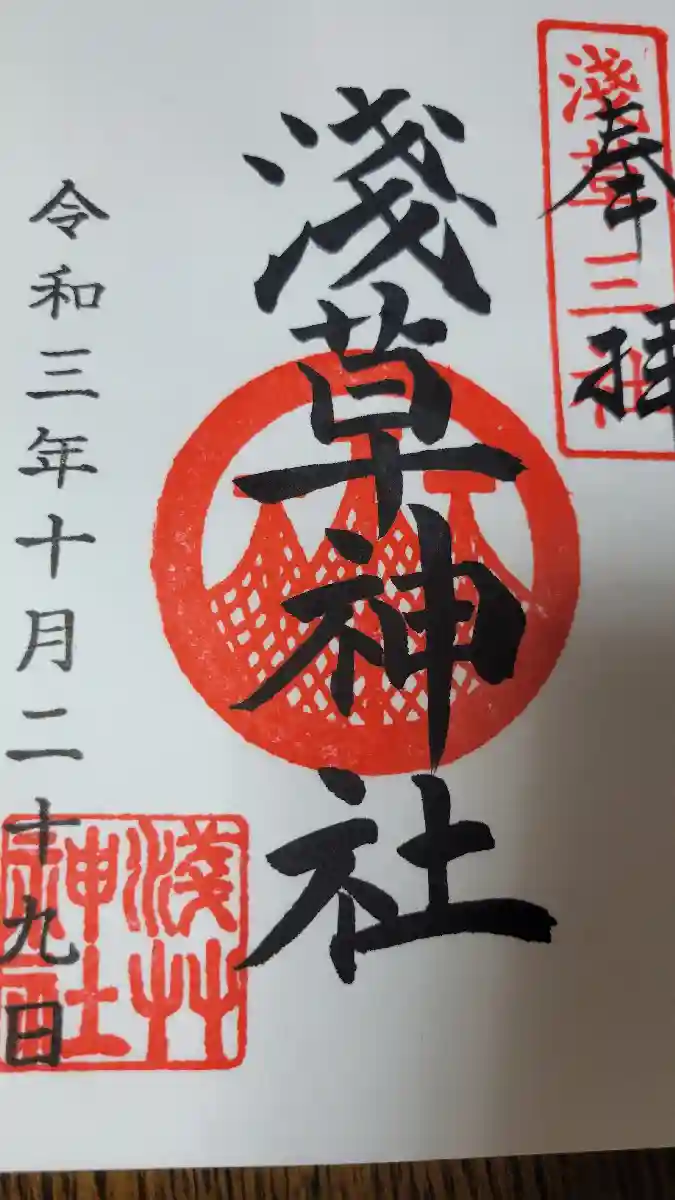 奉拝
淺草三社
淺草神社
令和三年十月二十九日
淺草
神社